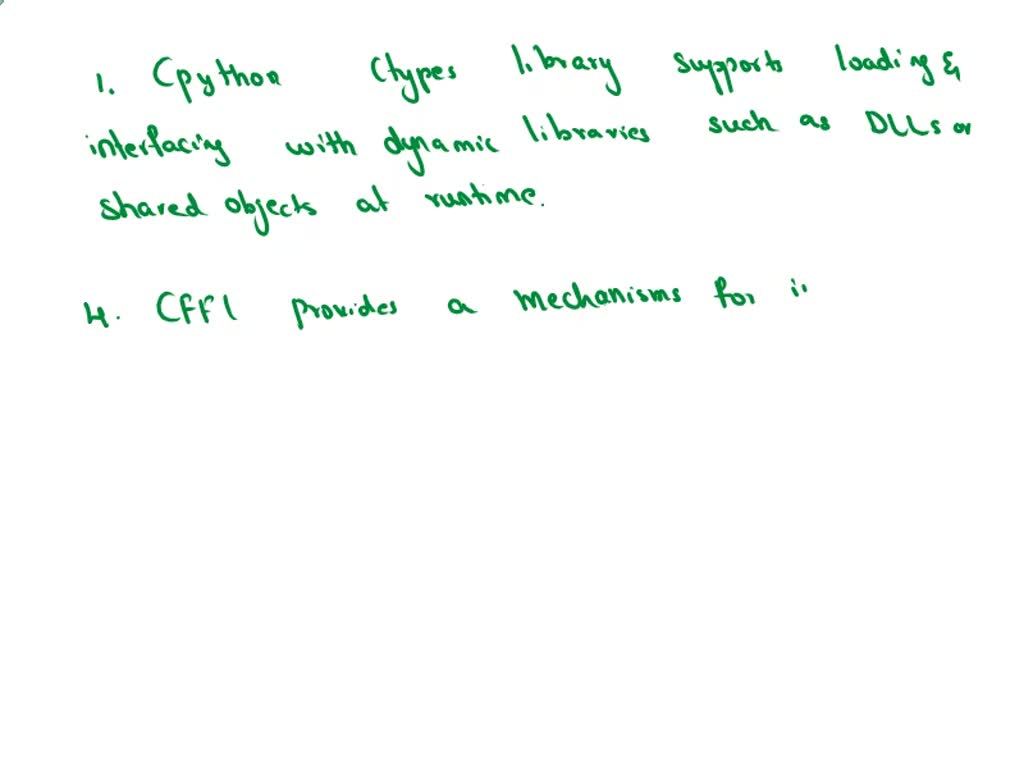 1. Cpython Ctypes library supports loading &
interfacing with dynamic libraries such as DLLs or
shared objects at runtime.
4. CFFI provides a mechanisms for i